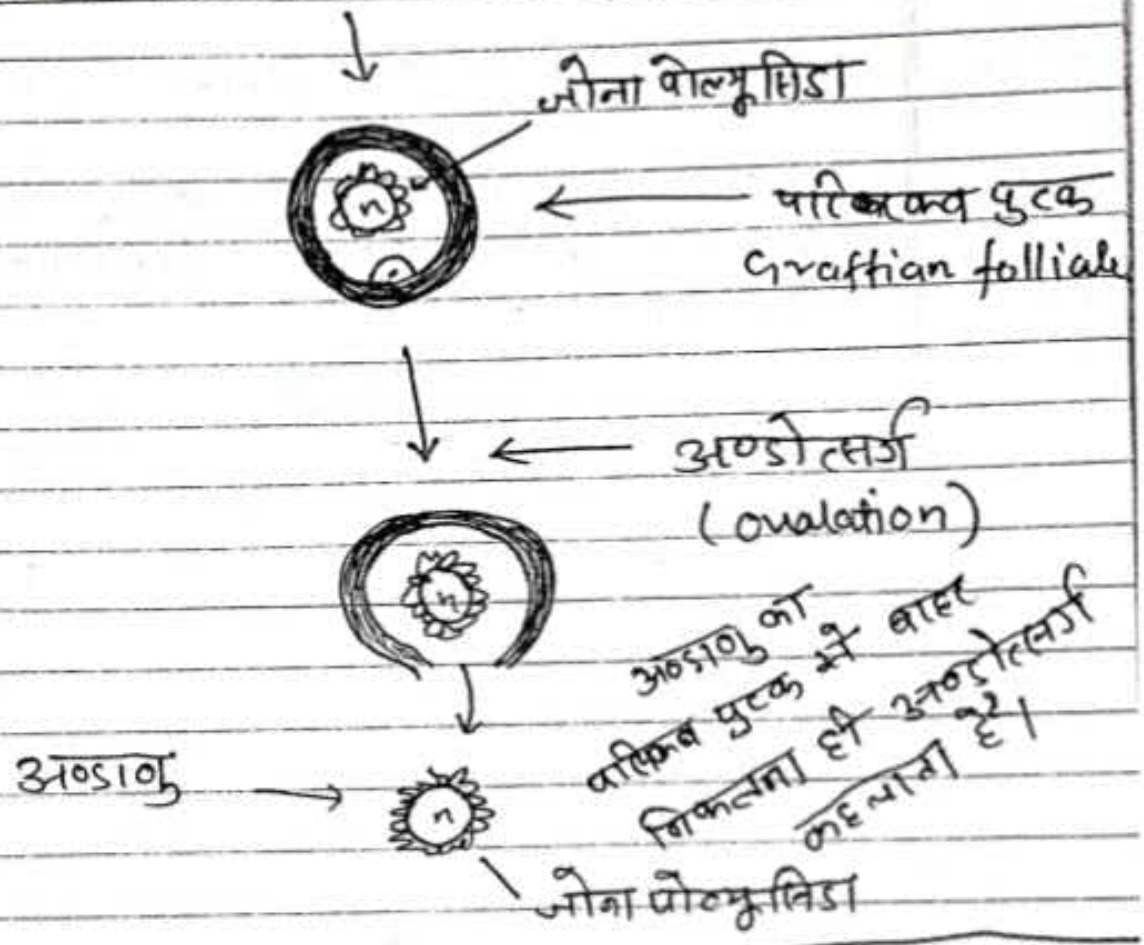 जोना पोल्यूसिडा
n
परिपक्व पुटक
Graffian follicle
अण्डोत्सर्ग
(ovalation)
n
अण्डाणु का
परिपक्व पुटक से बाहर
निकलना ही अण्डोत्सर्ग
कहलाता है।
अण्डाणु
n
जोना पोल्यूसिडा